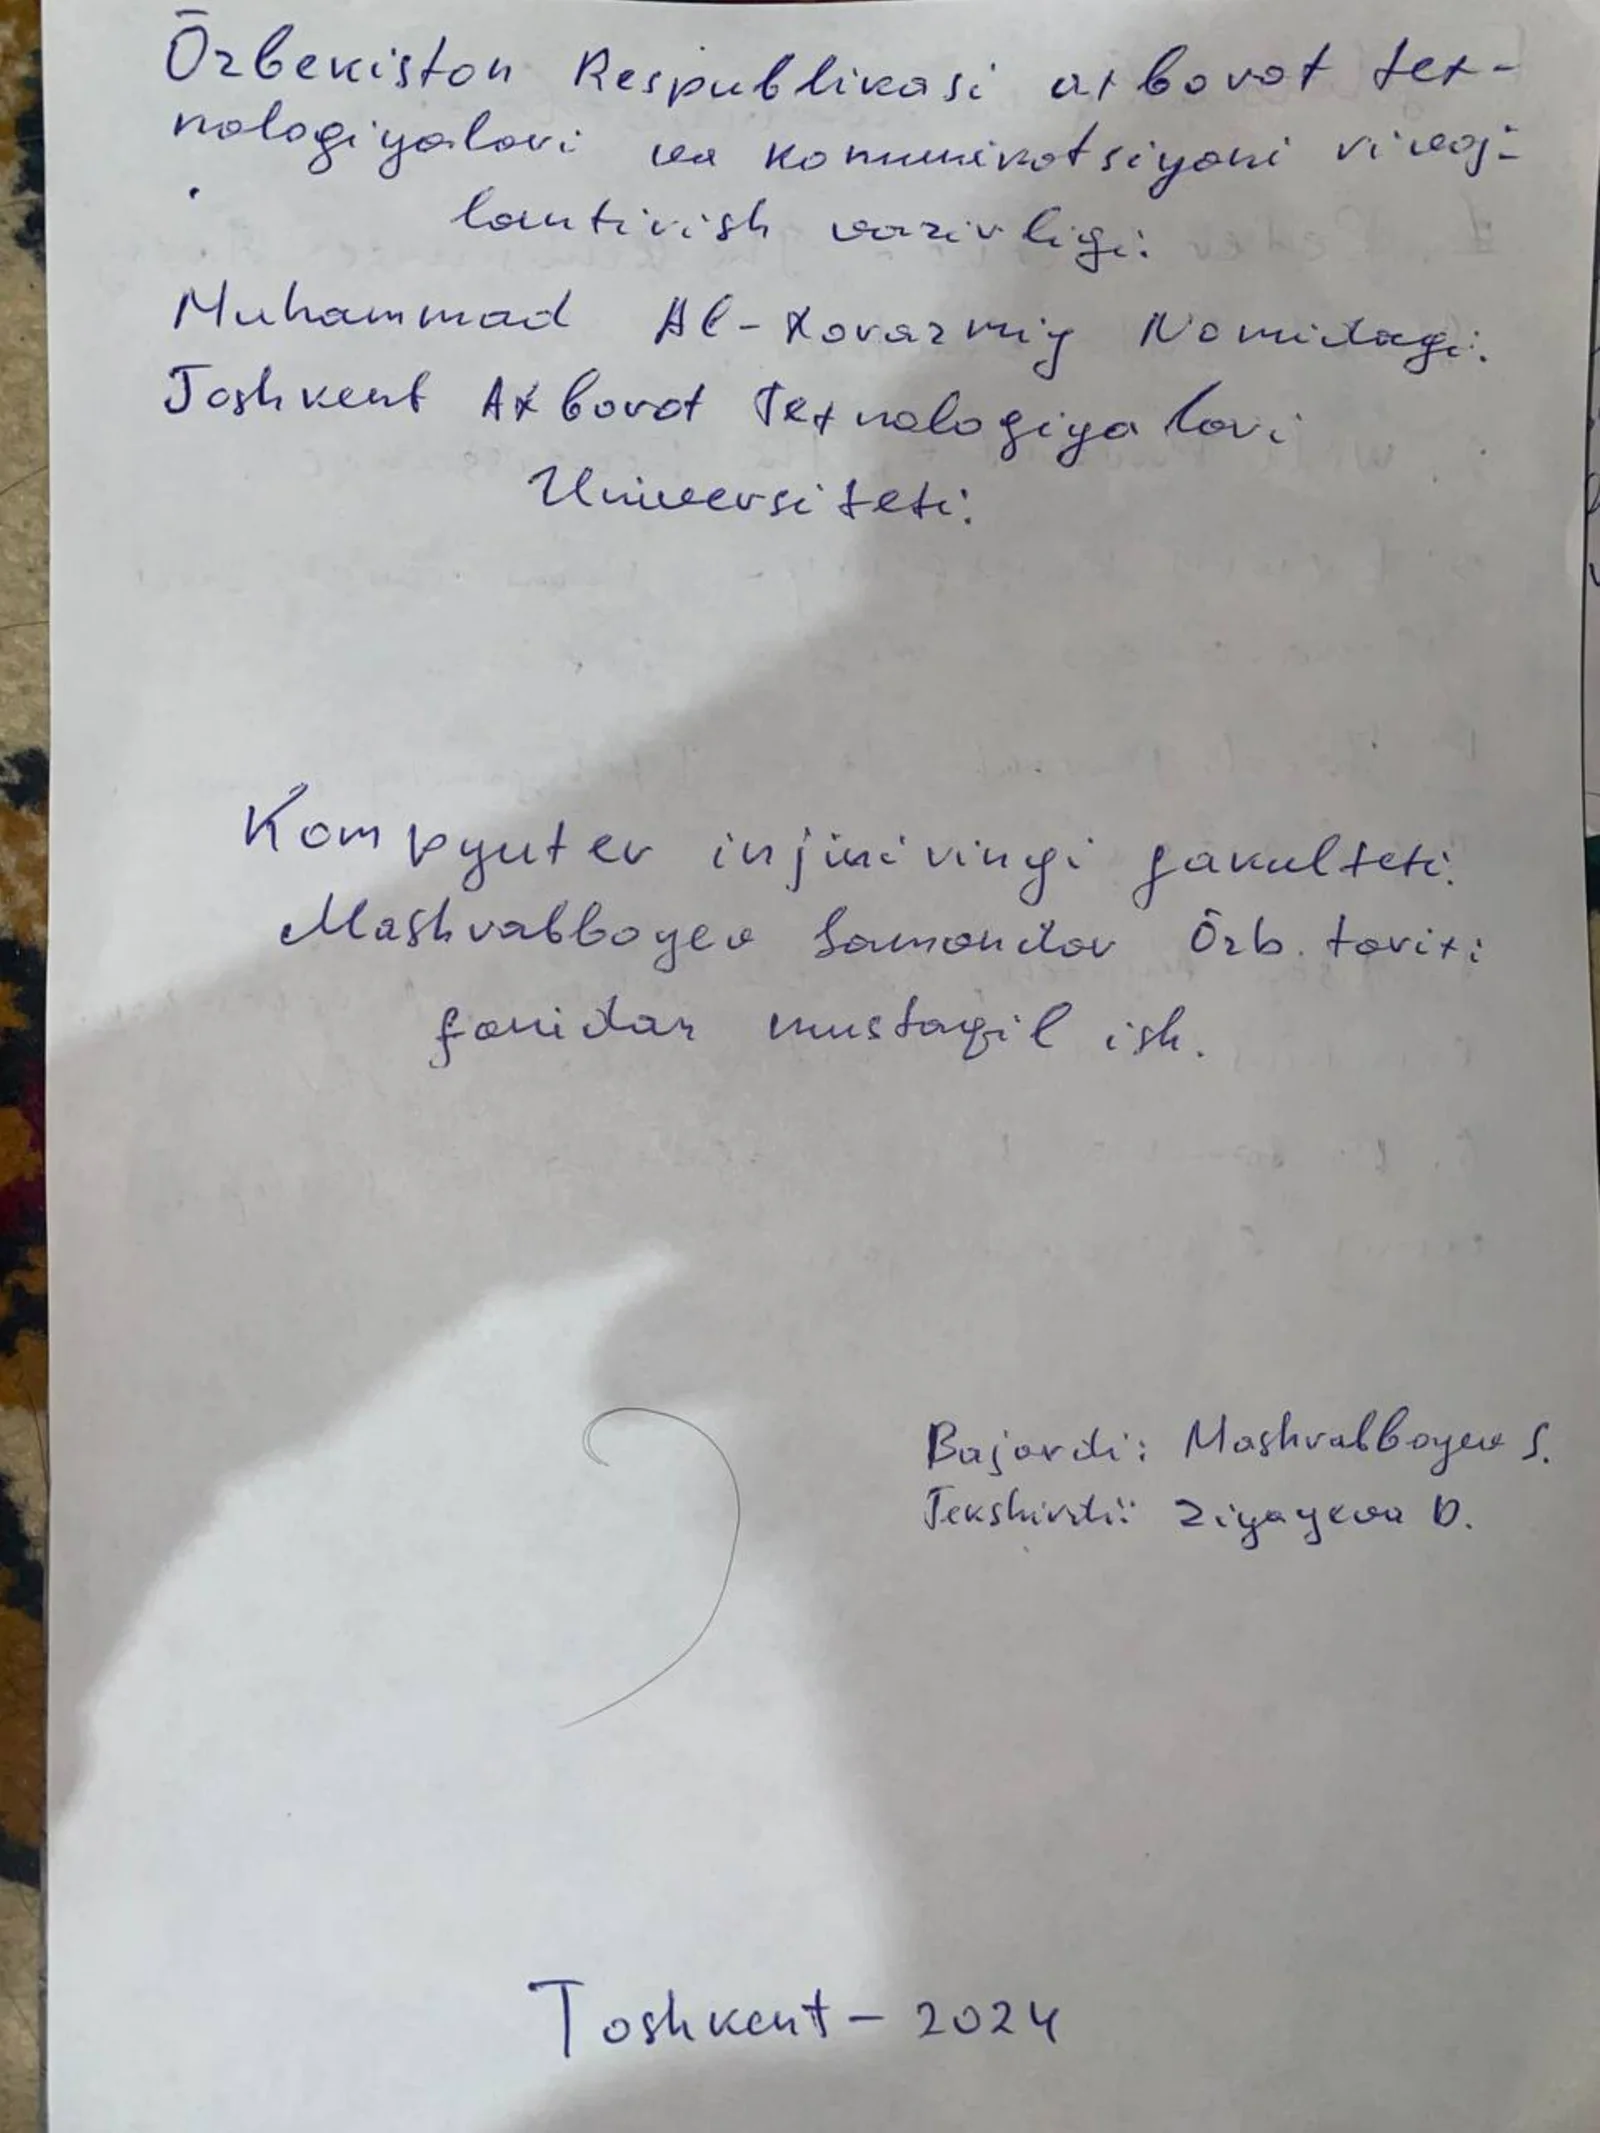 Ōzbekiston Respublikasi axborot tex-
nologiyalari va komunikatsiyani rivoj-
lantirish vazirligi:
Muhammad Al-Xorazmiy Nomidagi:
Toshkent Axborot Texnologiyalari
Universiteti:
Kompyuter injiniringi fakulteti:
Mashrabboyev Samandar Ōzb. tarixi
fanidan mustaqil ish.
Bajardi: Mashrabboyev S.
Tekshirdi: Ziyayeva D.
Toshkent – 2024